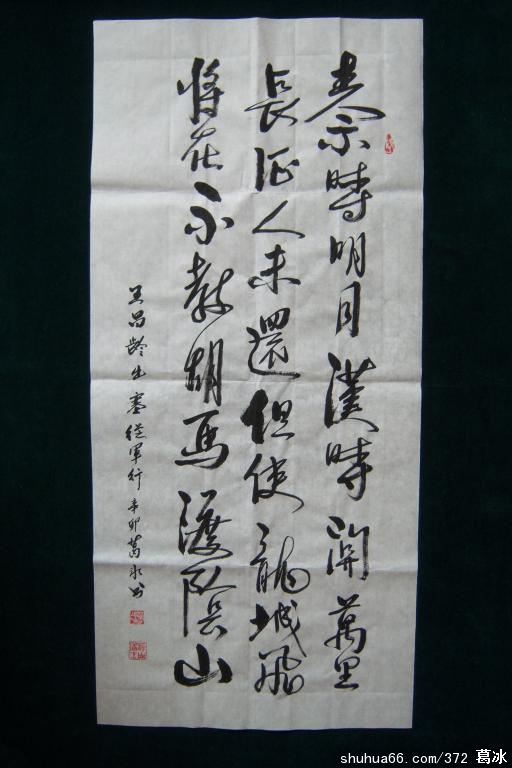 秦時明月漢時關萬里
長征人未還但使龍城飛
將在不教胡馬渡陰山
王昌龄出塞從軍行辛卯葛冰書
shuhua66.com/372 葛冰